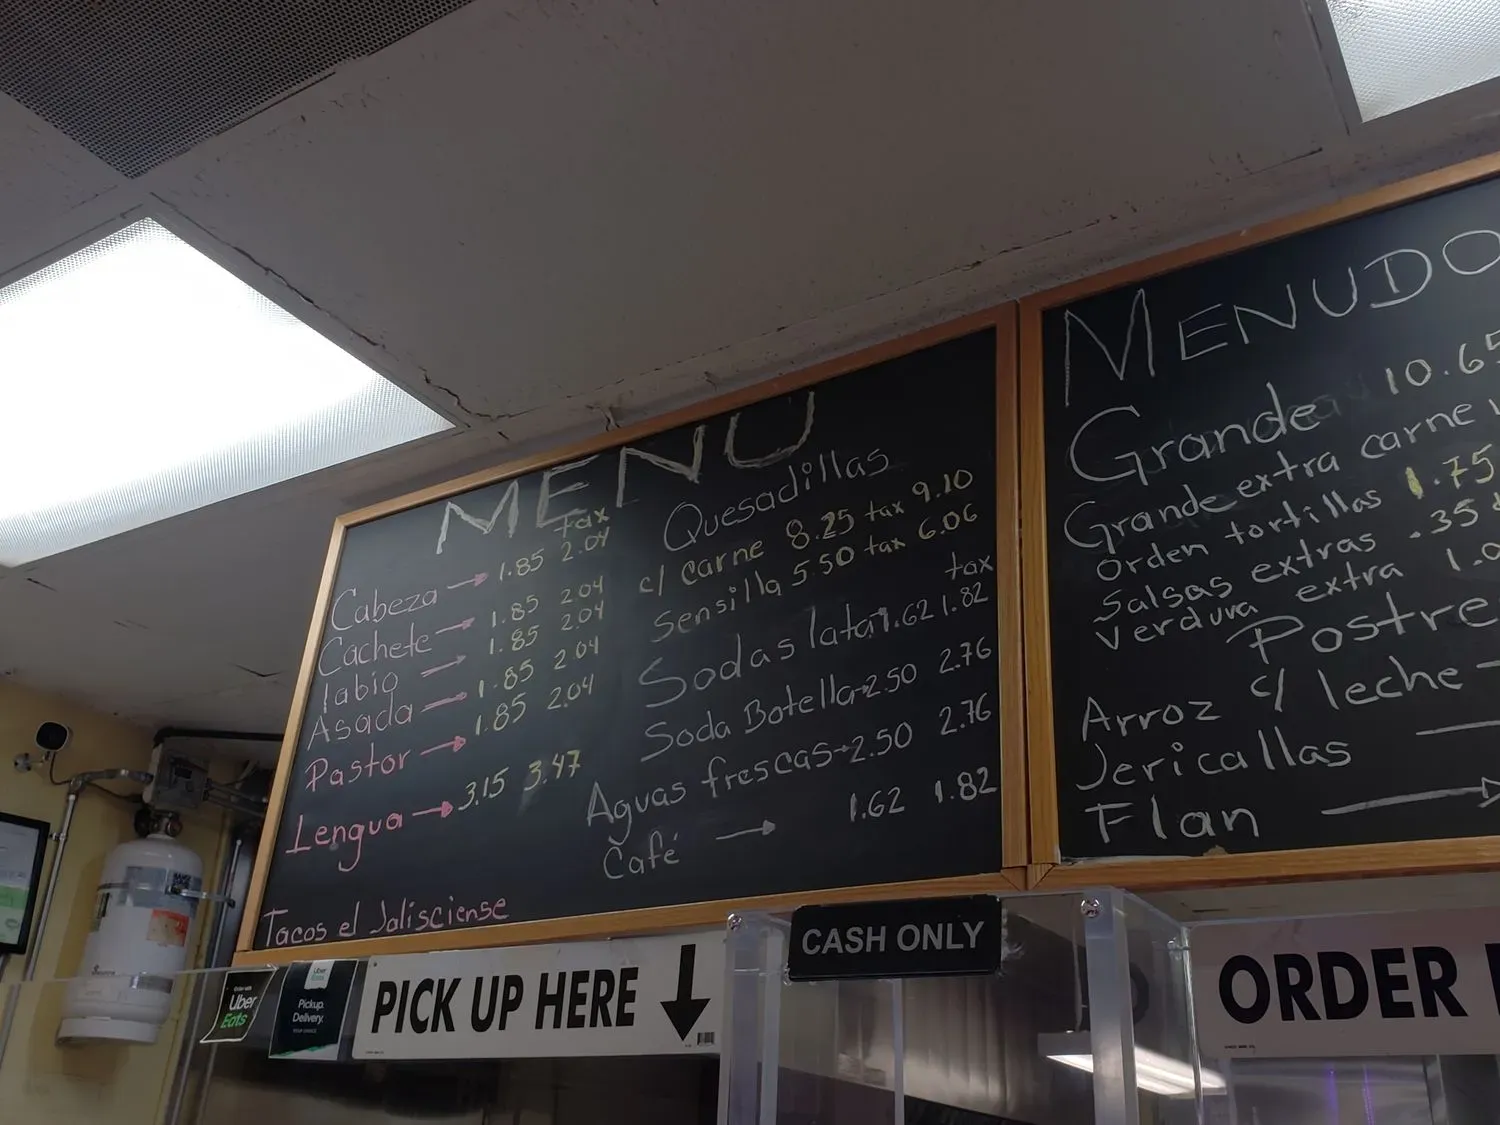 MENU
tax
Cabeza → 1.85 2.04
Cachete → 1.85 2.04
labio → 1.85 2.04
Asada → 1.85 2.04
Pastor → 1.85 2.04
Lengua → 3.15 3.47
Tacos el Jalisciense
Quesadillas
c/ carne 8.25 tax 9.10
Sensilla 5.50 tax 6.06
tax
Sodas lata 1.62 1.82
Soda Botella → 2.50 2.76
Aguas frescas → 2.50 2.76
Café → 1.62 1.82
MENUDO
Grande 10.65
Grande extra carne
Orden tortillas 1.75
Salsas extras .35
Verdura extra 1.0
Postre
Arroz c/ leche
Jericallas
Flan →
CASH ONLY
Uber
Eats
Uber
Eats
Pickup.
Delivery.
PICK UP HERE ↓
ORDER